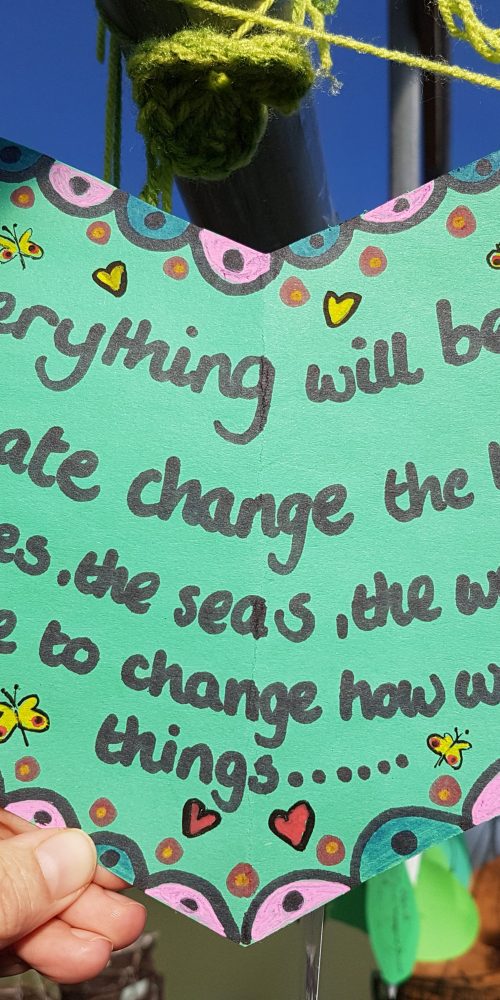 erything will be
ate change the
es, the seas, the w
e to change how w
things.......